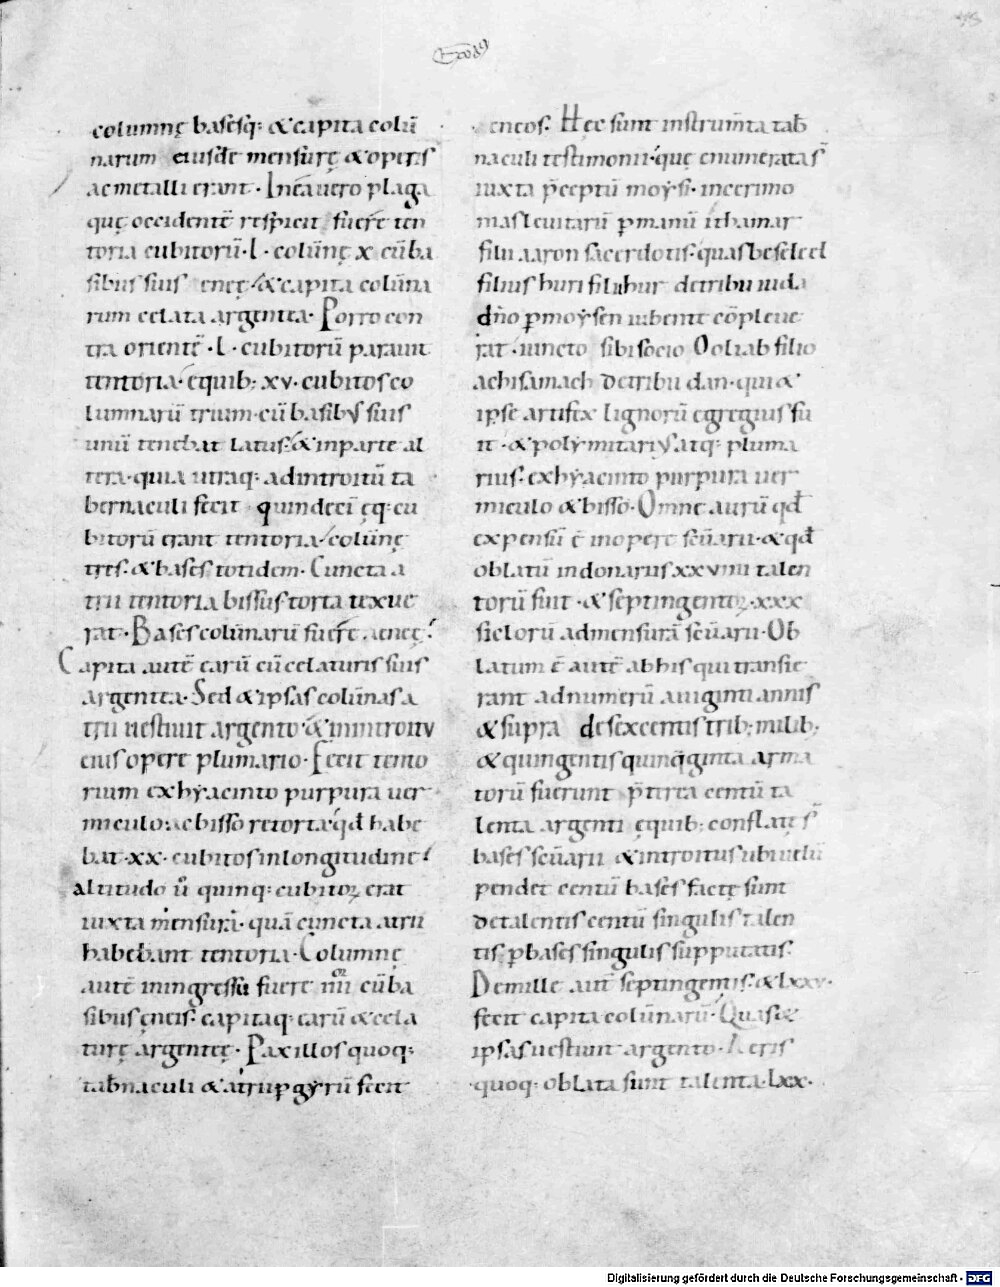 Exod9
columnę basesq: & capita colū
narum eiusdē mensurę & operis
ac metalli erant · In ea uero plaga
quę occidentē respicit fuere ten
toria cubitorū · L · colūnę x cū ba
sibus suis eneę & capita colūna
rum celata argentea · Porro con
tra orientē · L · cubitorū parauit
tentoria · equib: xv · cubitos co
lumnarū trium · cū basibus suis
unū tenebat latus · & in parte al
tera · quia utraq: ad introitū ta
bernaculi fecit quindecī ęq: cu
bitorū erant tentoria colūnę
tres · & bases totidem · Cuncta a
trii tentoria bissus torta texue
rat · Bases colūnarū fuere aeneę
Capita autē earū cū celaturis suis
argentea · Sed & ipsas colūnas a
trii uestiuit argento · & in introitu
eius opere plumario · Fecit tento
rium ex hyacinto purpura uer
miculo · ac bisso retorta · qđ habe
bat · xx · cubitos in longitudine
altitudo ū quinq: cubitoꝝ erat
iuxta mensurā · quā cuncta atrii
habebant tentoria · Columnę
autē in ingressu fuere iiii cū ba
sibus ęneis · capitaq: earū & cela
turę argenteę · Paxillos quoq:
tab̄naculi & atrii ꝑ gyrū fecit
eneos · Hec sunt instrum̄ta tab̄
naculi testimonii · quę enumerata s̄
iuxta p̄ceptū moysi · in cerimo
nias leuitarū ꝑ manū ithamar
filii aaron sacerdotis · quas beseleel
filius huri filii hur de tribu iuda
dn̄o ꝑ moysen iubente cōpleue
rat · iuncto sibi socio Ooliab filio
achisamach de tribu dan · qui &
ipse artifex lignorū egregius fu
it · & polymitarius atq: pluma
rius · ex hyacinto purpura uer
miculo & bisso · Omne aurū qđ
expensū ē in opere sc̄uarii · & qđ
oblatū in donariis xxviiii talen
torū fuit · & septingentoꝝ · xxx
siclorū ad mensurā sc̄uarii · Ob
latum ē autē ab his qui transie
rant ad numerū a uiginti annis
& supra de sexcentis trib: milib:
& quingentis quinq̄ginta arma
torū fuerunt p̄terea centū ta
lenta argenti equib: conflatę s̄
bases sc̄uarii & introitus ubi uelū
pendet centū bases factę sunt
de talentis centū singulis talen
tis · ꝑ bases singulis supputatis ·
De mille aut̄ septingentis · & lxxv ·
fecit capita colūnarū · Quas &
ipsas uestiuit argento · Aeris
quoq: oblata sunt talenta · lxx ·
Digitalisierung gefördert durch die Deutsche Forschungsgemeinschaft - DFG